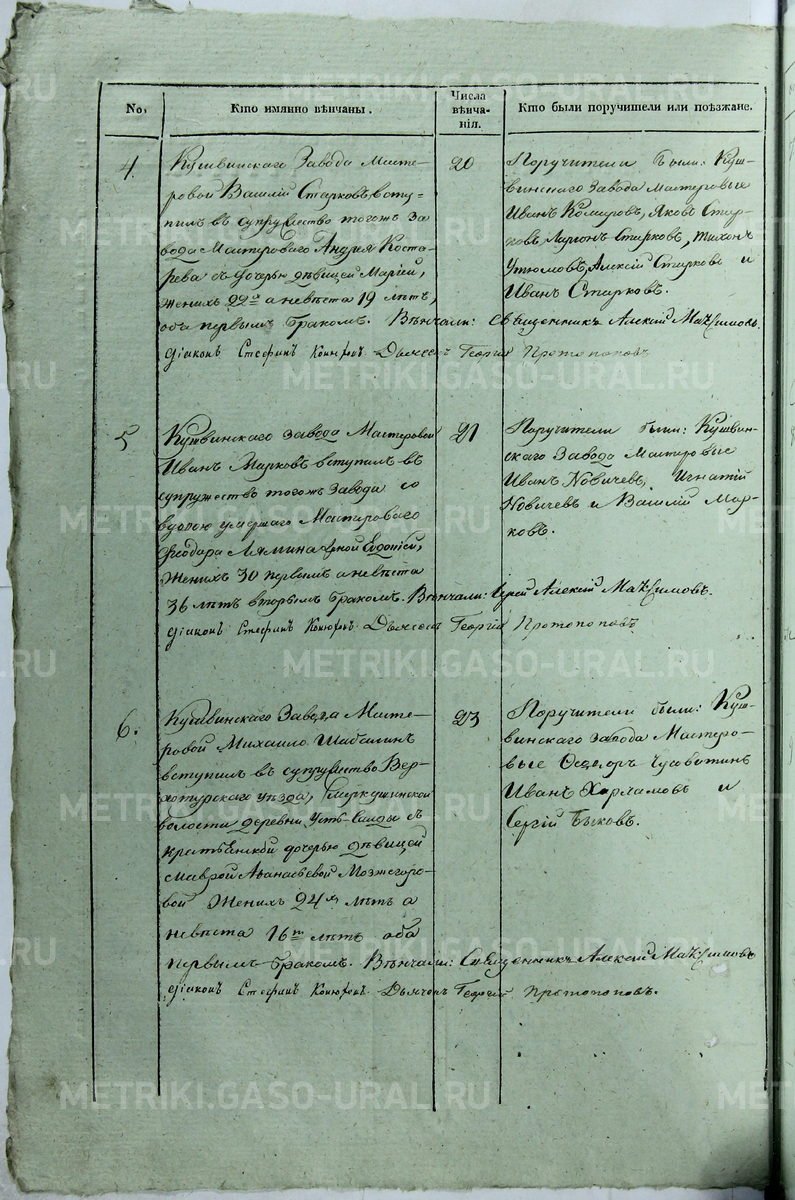 No.
Кто имянно вѣнчаны.
Числа вѣнча-нія.
Кто были поручители или поѣзжане.
4.
Кушвинскаго Завода Масте-
ровой Василій Старковъ всту-
пилъ въ супружество тогожъ За
вода Мастероваго Андрея Коста
рева съ дочерью дѣвицей Маріей,
женихъ 22хъ а невѣста 19 лѣтъ,
оба первымъ бракомъ. Вѣнчали: Священникъ Алексій Максимовъ.
діаконъ Стефанъ Дьячекъ Георгій Протопоповъ
20
Поручители были: Куш-
винскаго Завода Мастеровые
Иванъ Комаровъ, Яковъ Стар-
ковъ, Ларіонъ Старковъ, Тихонъ
Утюмовъ, Алексій Старковъ и
Иванъ Старковъ.
5
Кушвинскаго Завода Мастеровой
Иванъ Марковъ вступилъ въ
супружество тогожъ Завода со
вдовою умершаго Мастероваго
Ѳеодара Лямина женой Евдокіей,
Женихъ 30 первымъ а невѣста
36 лѣтъ вторымъ бракомъ. Вѣнчали: Іерей Алексій Максимовъ.
діаконъ Стефанъ Дьячекъ Георгій Протопоповъ
21
Поручители были: Кушвин-
скаго Завода Мастеровые
Иванъ Новичевъ, Игнатій
Новичевъ и Василій Мар-
ковъ.
6.
Кушвинскаго Завода Масте-
ровой Михаило Шабалинъ
вступилъ въ супружество Вер-
хотурскаго уѣзда, Меркушинской
волости деревни Усть-Салды съ
крестьянской дочерью дѣвицей
Маврой Аѳанасьевой
Женихъ 24хъ лѣтъ а
невѣста 16ти лѣтъ оба
первымъ бракомъ. Вѣнчали: Священникъ Алексій Максимовъ
діаконъ Стефанъ Дьячокъ Георгій Протопоповъ.
23
Поручители были: Куш-
винскаго завода Мастеро-
вые
Иванъ Харламовъ и
Сергій Быковъ.
METRIKI.GASO-URAL.RU